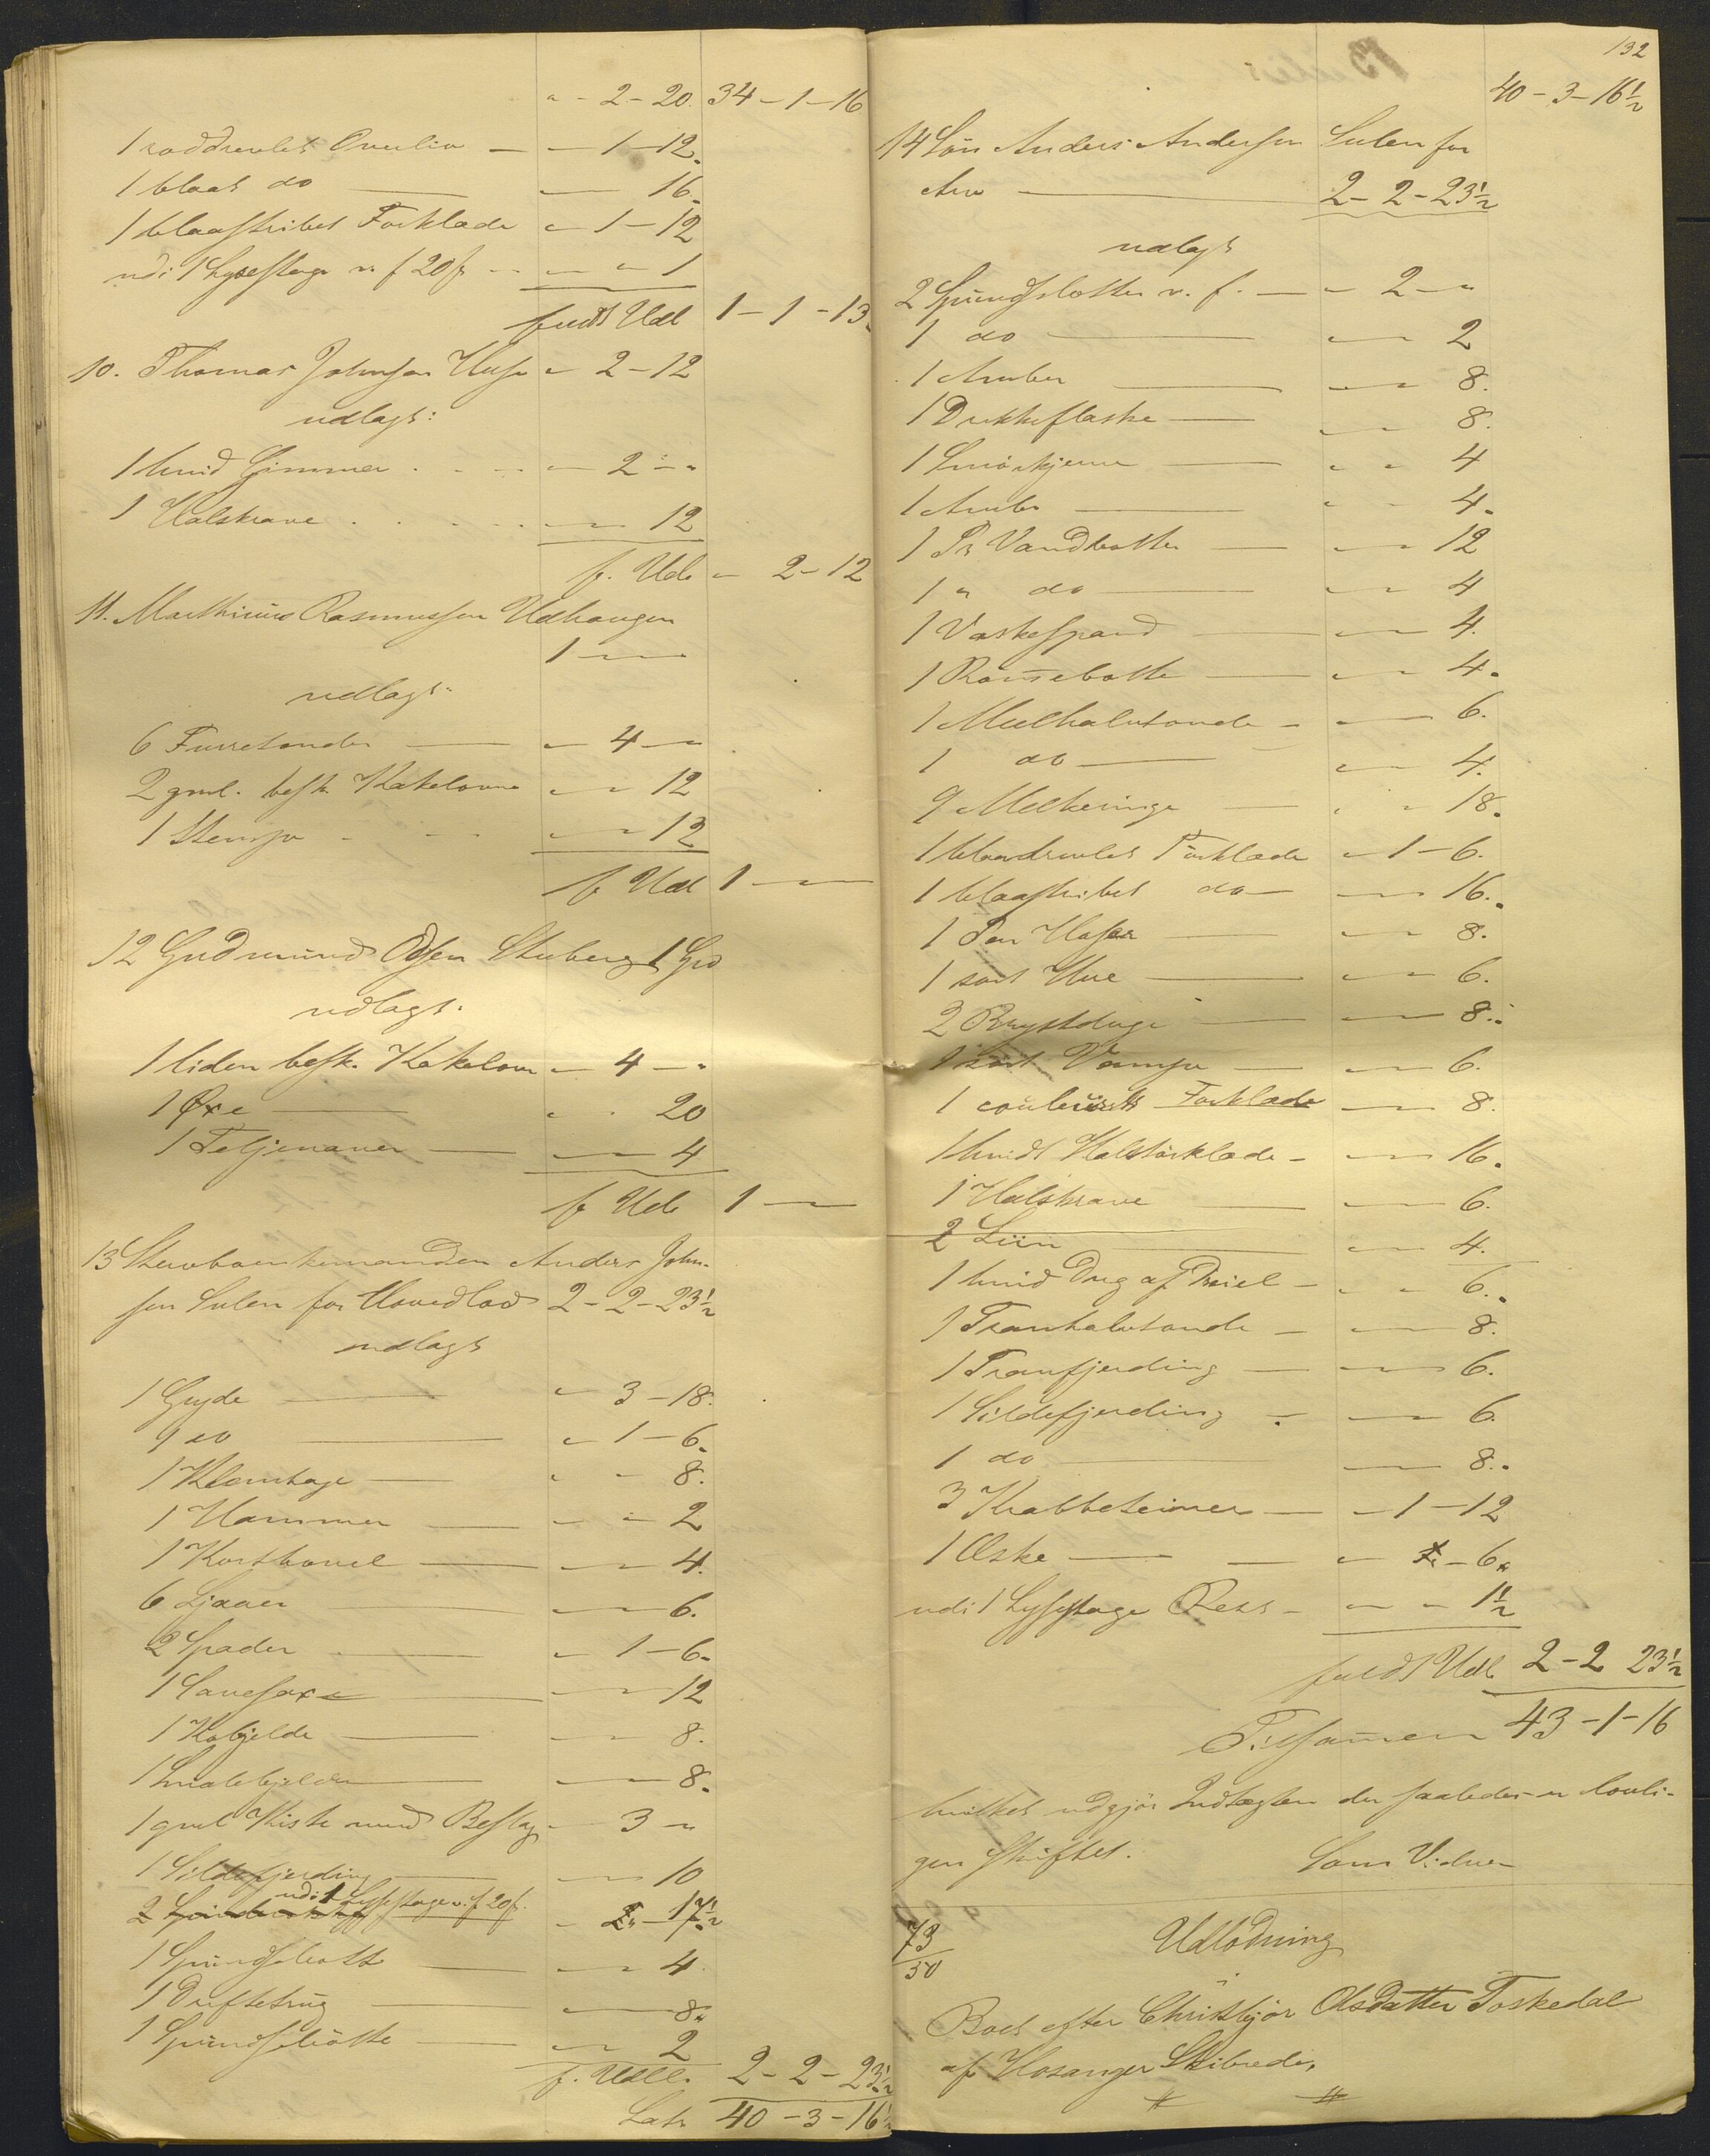 " - 2 - 20. 34 - 1 - 16
1 røddreulet Overliv — " - 1 - 12.
1 blaat do — " — 16.
1 blaastribet Forklæde " - 1 - 12
udi 1 Lysestage v. f 20 s — " — " 1
fuldt Udl 1 - 1 - 13.
10. Thomas Johnsen Huse " 2 - 12
udlagt:
1 hvid Gimmer " 2 - "
1 Halskrave " - " 12
f. Udl " 2 - 12
11. Mathias Rasmussen Udhaugen
1 — " — "
udlagt:
6 Furretønder — " - 4 - "
2 gml. besk. Kakelovne " - " 12
1 Stamp " - " 12
f Udl 1 — "
12 Gudmund Olsen Stuberg 1 Hd
udlagt:
1 liden besk. Kakelovn " 4 - "
1 Øxe — " . 20
1 Teljenaver — " — " 4
f Udl 1 — "
13 Stervboenkemanden Anders John-
sen Sulen for Hovedlod 2 - 2 - 23½
udlagt
1 Gryde — " 3 - 18.
1 do — " 1 - 6.
1 Klemhage — " - 8.
1 Hammer — " - " 2
1 Korthövel — " — " 4.
6 Ljaaer — " — " 6.
2 Spader — " 1 - 6.
1 Sauesax — " — " 12
1 Kobjelde — " — " 8.
1 Smalebjelde — " — 8.
1 gml Kiste med Beslag " 3 "
1 Sildefjerding — " 10
udi 1 Lysestage v. f 20 s. " - " - 17½
1 Spündsbøtte — " — " 4.
1 Driftetrüg — " — 8.
1 Spündsbøtte — " - 2
f. Udl. 2 - 2 - 23½
Lat. 40 - 3 - 16½
132
40 - 3 - 16½
14 Søn Anders Andersen Sulen for
Arv — 2 - 2 - 23½
udlagt
2 Spündsbøtter v. f. — " 2 - "
1 do — " — " 2
1 Amber — " — " 8.
1 Drikkeflaske — " — " 8.
1 Smørkjerne — " " 4
1 Amber — " - 4.
1 Pr Vandbøtter — " — " 12
1 " do — " — " 4
1 Vaskespand — " — " 4.
1 Rømmebøtte — " — " 4.
1 Meelhalvtønde — " — " 6.
1 do — " — 4.
9 Melkeringe — " " 18.
1 blaadreulet Forklæde " - 1 - 6.
1 blaastribet do — " — " 16.
1 Par Hoser — " — " 8.
1 sort Hue — " — " 6.
2 Brystduge — " — " 8.
1 sort Vamse — " — " 6.
1 couleurt Forklæde — " — " 8.
1 hvidt Halstørklæde — " — " 16.
1 Halskrave — " — " 6.
2 Liin — " — " 4.
1 hvid Dug af Dreiel — " " 6.
1 Tranhalvtønde — " — " 8.
1 Tranfjerding — " — " 6.
1 Sildefjerding — " — " 6.
1 do — " — " 8.
3 Krabbeteiner — " - 1 - 12
1 Æske — " — " - 6.
udi 1 Lysestage Rest — " — " 1½
fuldt Udl. 2 - 2 23½
Tilsamen 43 - 1 - 16
hvilket udgjør Indtægten der saaledes er lovli-
gen skiftet. Som Vidner
73
50
Udlodning
i
Boet efter Christbjør Olsdatter Toskedal
af Hosanger Skibrede,